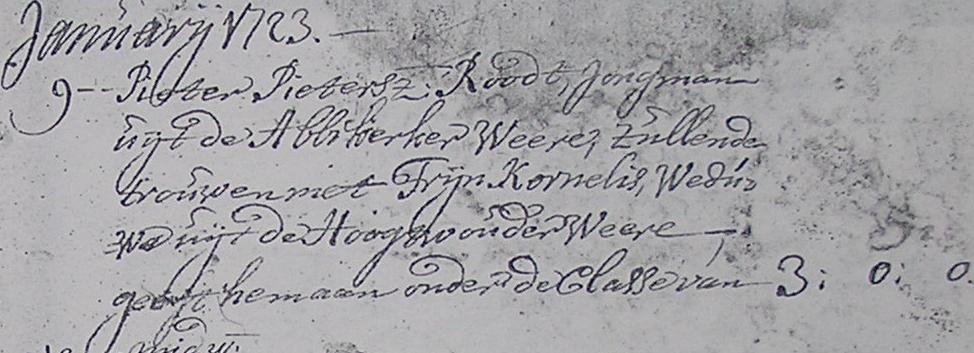 Januarij 1723. —
9 -- Pieter Pietersz: Roodt, Jongman
uijt de Abbikerker Weere, zullende
trouwen met Trijn Kornelis, Wedu=
we uijt de Hoogwouder Weere —
geeft hem aan onder de Classe van 3: 0: 0.